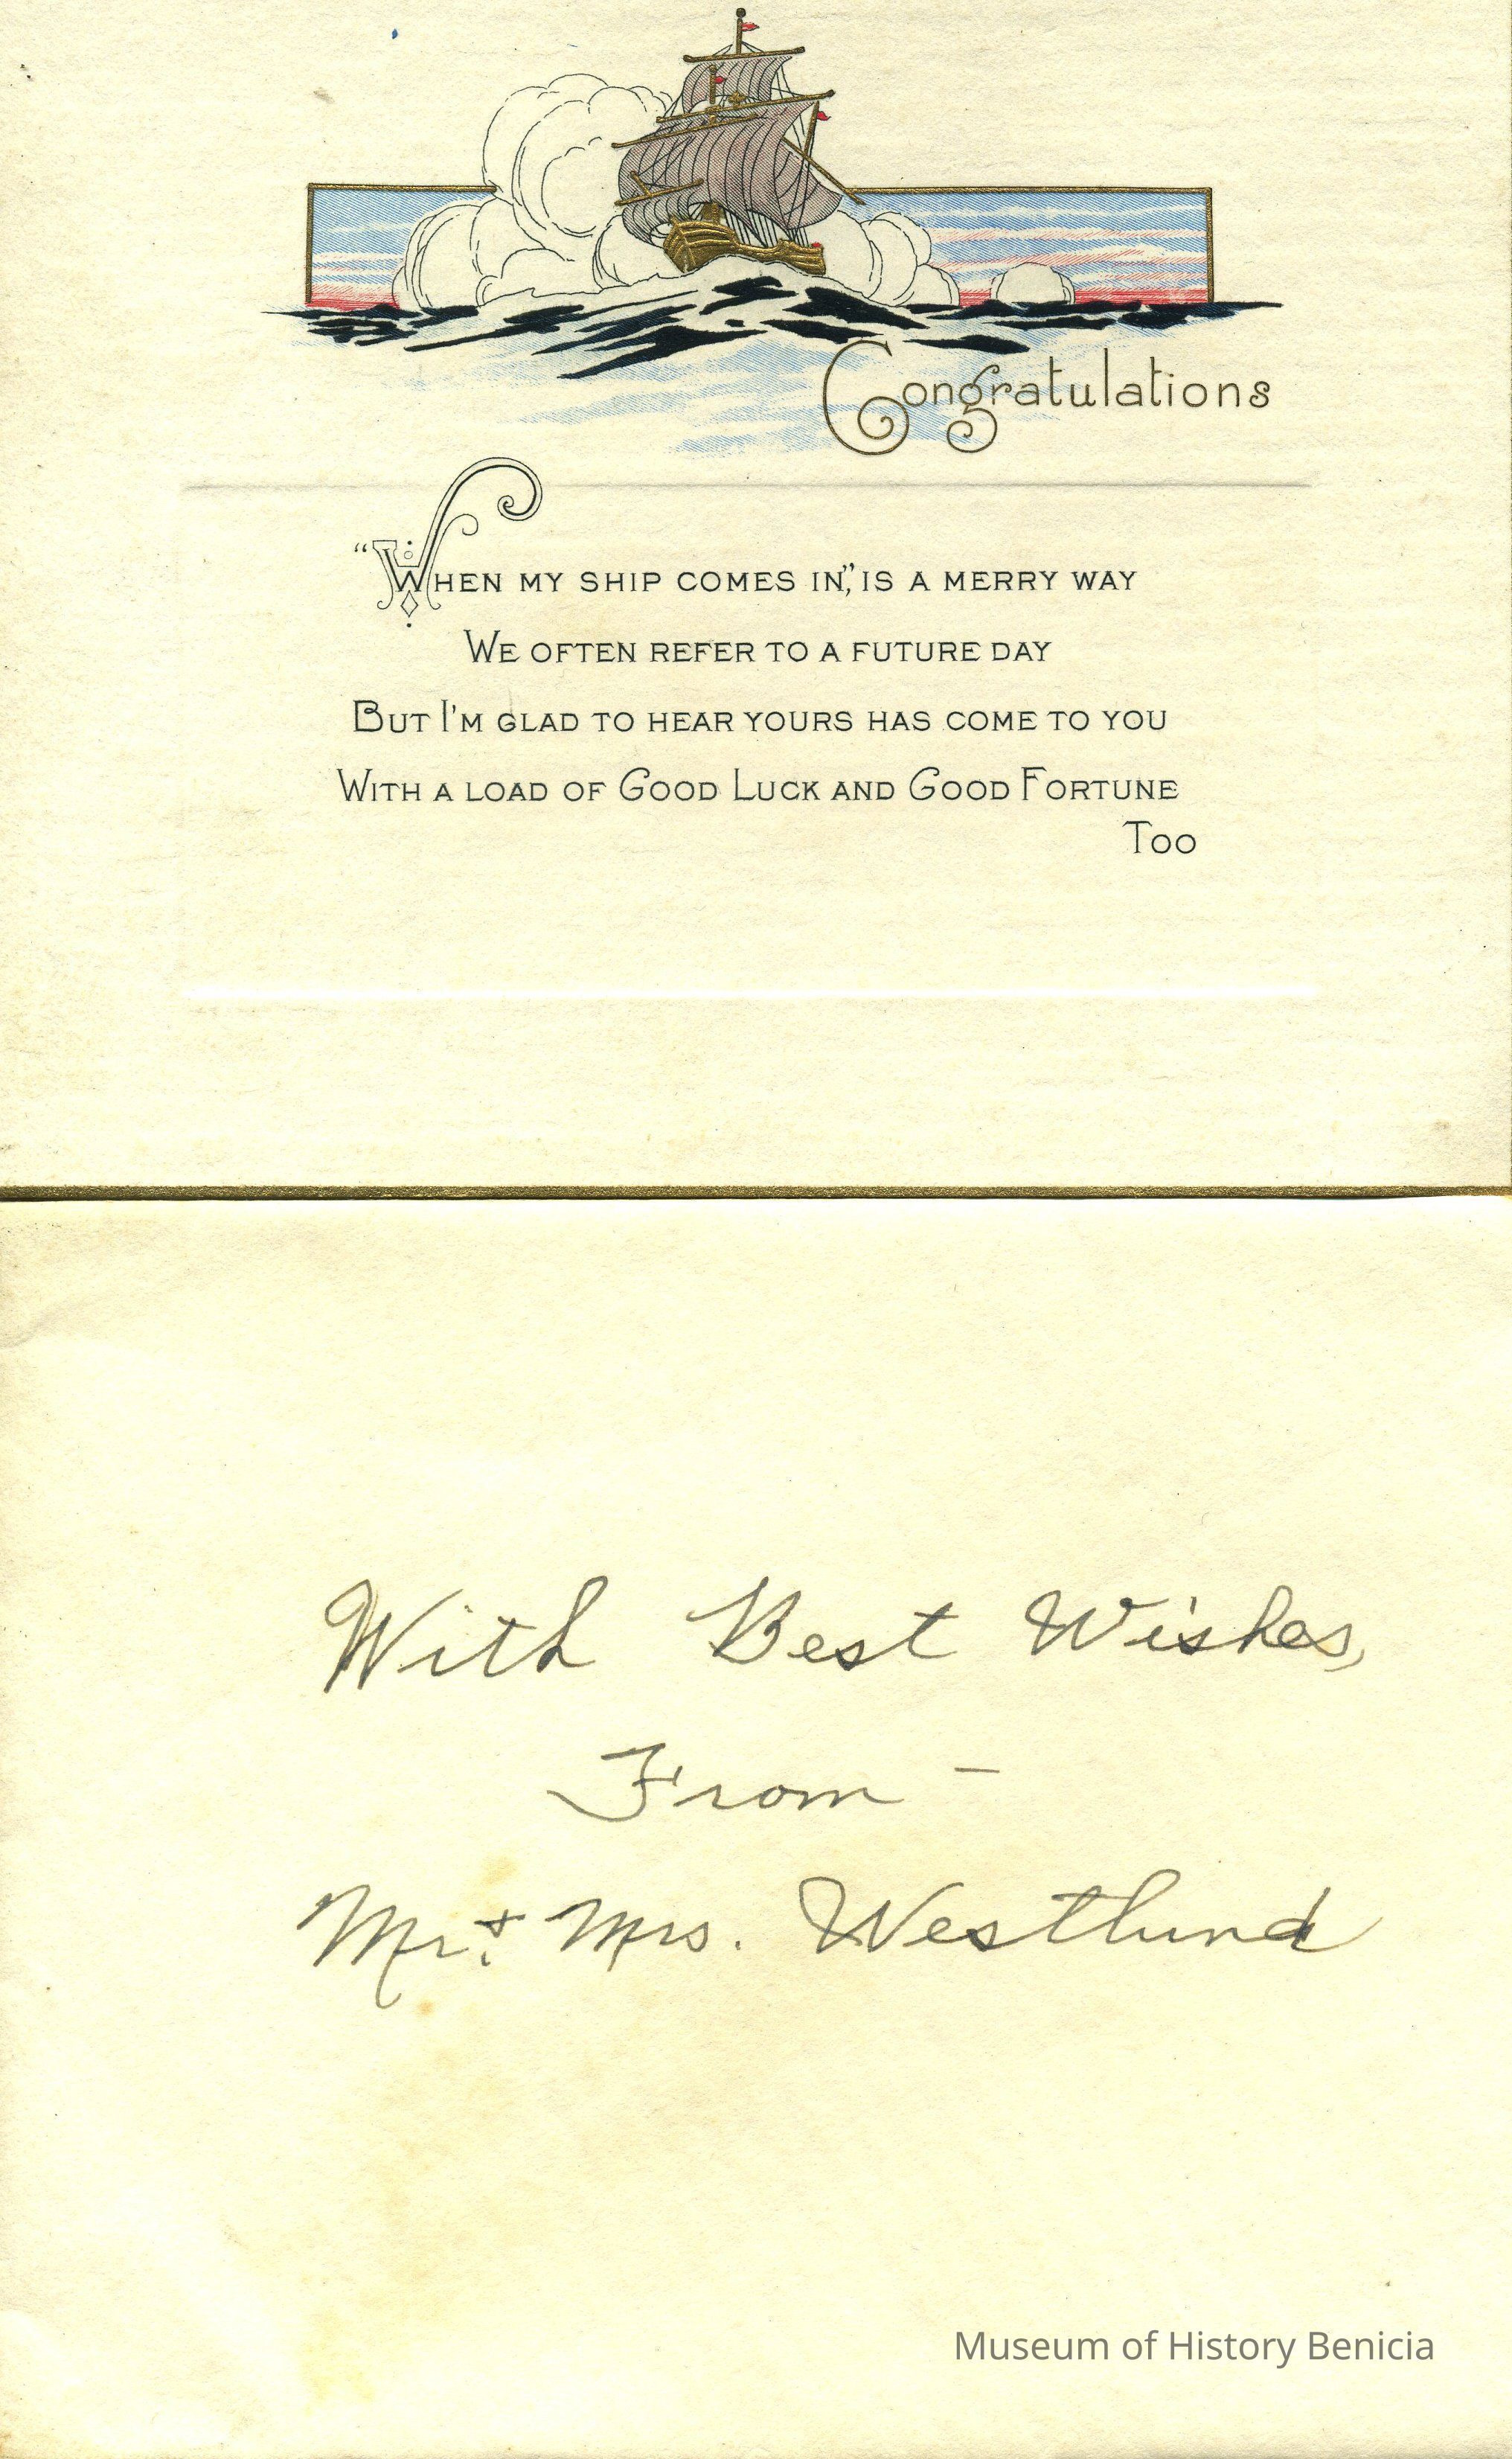 Congratulations
"When my ship comes in," is a merry way
We often refer to a future day
But I'm glad to hear yours has come to you
With a load of Good Luck and Good Fortune
Too
With Best Wishes,
From –
Mr. & Mrs. Westlund
Museum of History Benicia